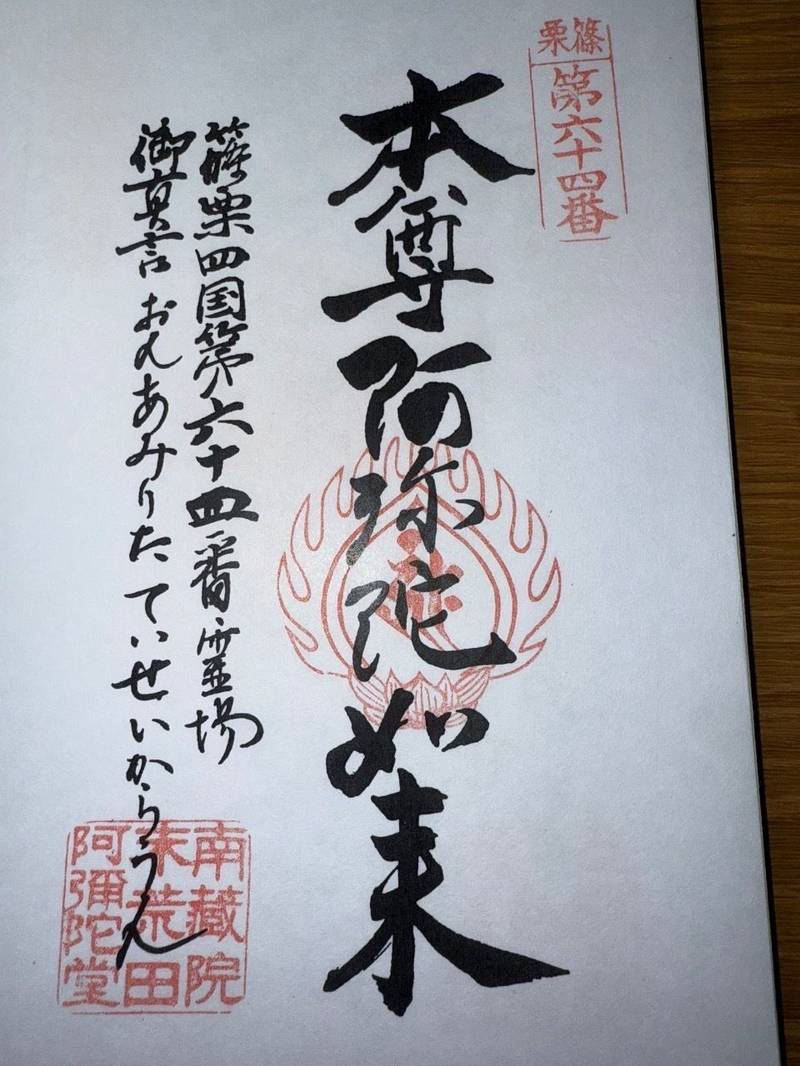 篠栗
第六十四番
本尊阿弥陀如来
篠栗四国第六十四番霊場
御真言 おんあみりたていせいからうん
南藏院
末荒田
阿彌陀堂